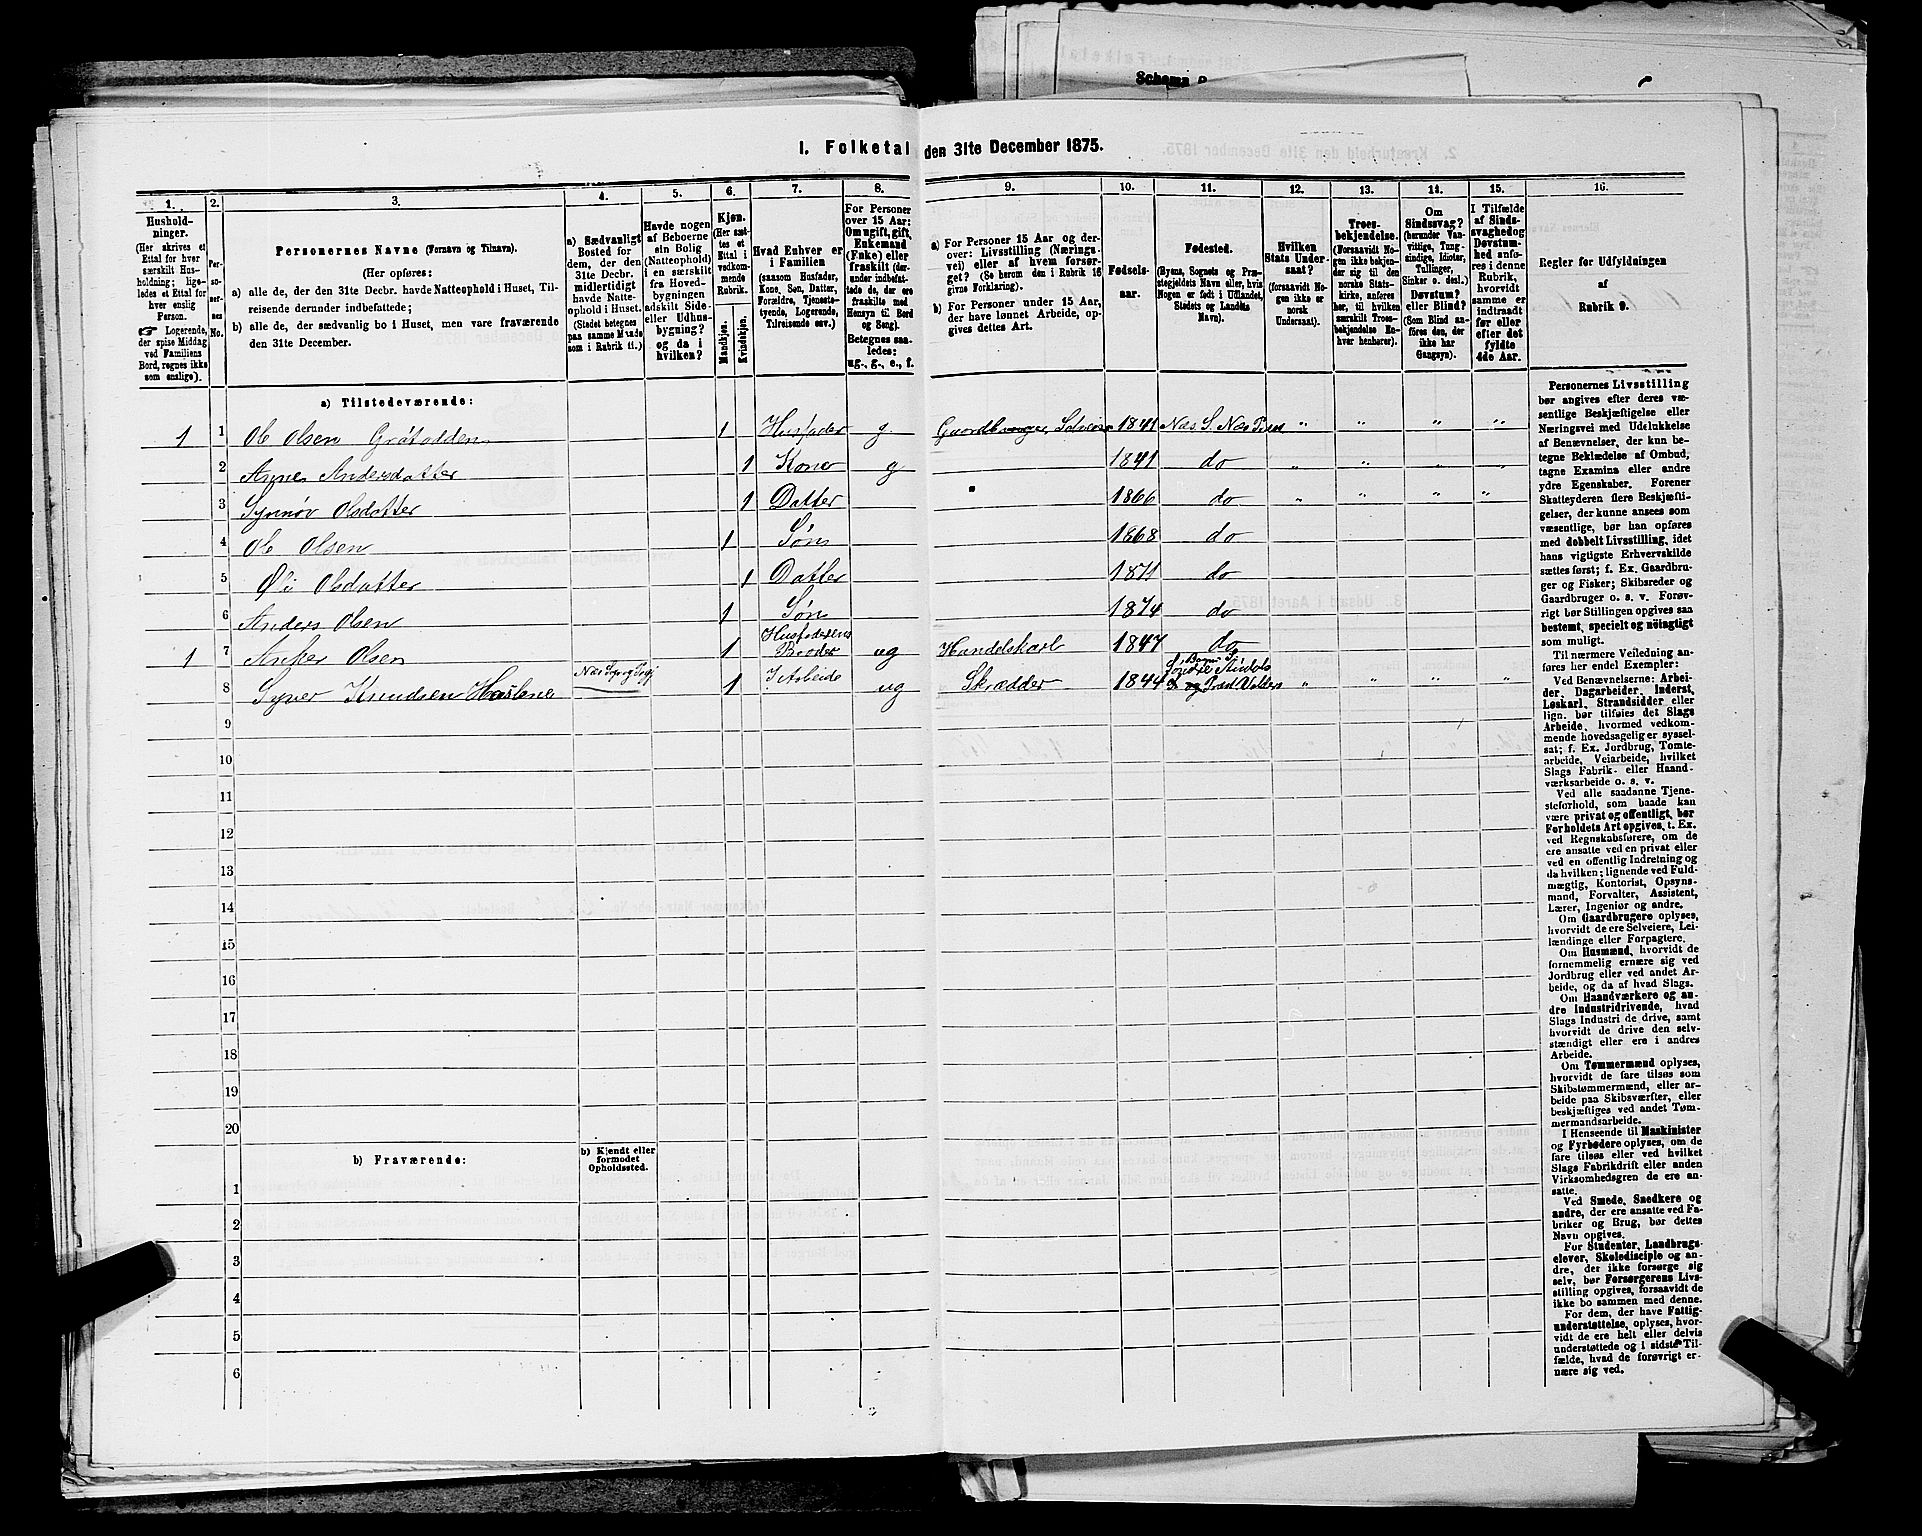 Schema
1. Folketal den 31te December 1875.
1. 2. 3. 4. 5. 6. 7. 8. 9. 10. 11. 12. 13. 14. 15. 16.
Hushold-
ninger.
(Her skrives et
Ettal for hver
særskilt Hus-
holdning; lige-
ledes et Ettal for
hver enslig
Person.
☞ Logerende,
der spise Middag
ved Familiens
Bord, regnes ikke
som enslige).
Per-
so-
ner-
nes
No.
Personernes Navne (Fornavn og Tilnavn).
(Her opføres:
a) alle de, der den 31te Decbr. havde Natteophold i Huset, Til-
reisende derunder indbefattede;
b) alle de, der sædvanlig bo i Huset, men vare fraværende
den 31te December.
a) Sædvanligt
Bosted for
dem, der den
31te Decbr.
midlertidigt
havde Natte-
ophold i Huset.
(Stedet betegnes
paa samme Maade
som i Rubrik 11.)
Havde nogen
af Beboerne
sin Bolig
(Natteophold)
i en særskilt
fra Hoved-
bygningen
adskilt Side-
eller Udhus-
bygning?
og da i
hvilken?
Kjøn.
(Her sæt-
tes et
Ettal i
vedkom-
mende
Rubrik.
Mandkjøn.
Kvindekjøn.
Hvad Enhver er
i Familien
(saasom Husfader,
Kone, Søn, Datter,
Forældre, Tjeneste-
tyende, Logerende,
Tilreisende osv.)
For Personer
over 15 Aar:
Om ugift, gift,
Enkemand
(Enke) eller
fraskilt (der-
under indbefat-
tede de, der ere
fraskilte med
Hensyn til Bord
og Seng).
Betegnes saa-
ledes:
ug., g., e., f.
a) For Personer 15 Aar og der-
over: Livsstilling (Nærings-
vei) eller af hvem forsør-
get? (Se herom den i Rubrik 16
givne Forklaring).
b) For Personer under 15 Aar,
der have lønnet Arbeide, op-
gives dettes Art.
Fødsels-
aar.
Fødested.
(Byens, Sognets og Præ-
stegjeldets Navn eller, hvis
Nogen er født i Udlandet,
Stedets og Landets
Navn).
Hvilken
Stats Under-
saat?
(forsaavidt No-
gen ikke er
norsk
Undersaat).
Troes-
bekjendelse.
(Forsaavidt No-
gen ikke bekjen-
der sig til den
norske Stats-
kirke, anføres
her, til hvilken
særskilt Troes-
bekjendelse En-
hver henhører).
Om
Sindssvag?
(herunder Van-
vittige, Tung-
sindige, Idioter,
Tullinger,
Sinker o. desl.)
Døvstum?
eller Blind?
(Som Blind an-
føres den, der
ikke har
Gangsyn).
I Tilfælde
af Sinds-
svaghed og
Døvstum-
hed anfø-
res i denne
Rubrik,
hvorvidt
samme er
indtraadt
før eller
efter det
fyldte
4de Aar.
Regler for Udfyldningen
af
Rubrik 9.
a) Tilstedeværende:
1 1 Ole Olsen Grötodden 1 Husfader g. Gaardbruger, Selveier 1841 Næs S. Næs Præst " " " "
2 Agnes Andersdatter 1 Kone g 1841 do " " " "
3 Synnöv Olsdatter 1 Datter 1866 do " " " "
4 Ole Olsen 1 Søn 1868 do
5 Øli Olsdatter 1 Datter 1871 do
6 Anders Olsen 1 Søn 1874 do
1 7 Anker Olsen 1 Husfaderens Broder ug Handelskarl 1847 do
8 Syver Knudsen Haslene 1 I Arbeide ug Skrædder 1844 " " " "
9
10
11
12
13
14
15
16
17
18
19
20
b) Fraværende:
b) Kjendt eller
formodet
Opholdssted.
1
2
3
4
5
6
Personernes Livsstilling
bør angives efter deres væ-
sentlige Beskjæftigelse eller
Næringsvei med Udelukkelse
af Benævnelser, der kun be-
tegne Beklædelse af Ombud,
tagne Examina eller andre
ydre Egenskaber. Forener
Skatteyderen flere Beskjæfti-
gelser, der kunne ansees som
væsentlige, bør han opføres
med dobbelt Livsstilling, idet
hans vigtigste Erhvervskilde
sættes først; f. Ex. Gaardbru-
ger og Fisker; Skibsreder og
Gaardbruger o. s. v. Forøv-
rigt bør Stillingen opgives saa
bestemt, specielt og nöiagtigt
som muligt.
Til nærmere Veiledning an-
føres her endel Exempler:
Ved Benævnelserne: Arbei-
der, Dagarbeider, Inderst,
Løskarl, Strandsidder eller
lign. bør tilføies det Slags
Arbeide, hvormed vedkom-
mende hovedsagelig er syssel-
sat; f. Ex. Jordbrug, Tomte-
arbeide, Veiarbeide, hvilket
Slags Fabrik- eller Haand-
værksarbeide o. s. v.
Ved alle saadanne Tjene-
steforhold, som baade kan
være privat og offentligt, bør
Forholdets Art opgives, t. Ex.
ved Regnskabsførere, om de
ere ansatte ved en privat eller
ved en offentlig Indretning og
da hvilken; lignende ved Fuld-
mægtig, Kontorist, Opsyns-
mand, Forvalter, Assistent,
Lærer, Ingeniør og andre.
Om Gaardbrugere oplyses,
hvorvidt de ere Selveiere, Lei-
lændinge eller Forpagtere.
Om Husmænd, hvorvidt de
fornemmelig ernære sig ved
Jordbrug eller ved andet Ar-
beide, og da af hvad Slags.
Om Haandværkere og an-
dre Industridrivende, hvad
Slags Industri de drive, samt
hvorvidt de drive den selv-
stændigt eller ere i andres
Arbeide.
Om Tømmermænd oplyses,
hvorvidt de fare tilsøs som
Skibstømmermænd, eller ar-
beide paa Skibsværfter, eller
beskjæftiges ved andet Tøm-
mermandsarbeide.
I Henseende til Maskinister
og Fyrbødere oplyses, om de
fare tilsøs eller ved hvilket
Slags Fabrikdrift eller anden
Virksomhedsgren de ere an-
satte.
Ved Smede, Snedkere og
andre, der ere ansatte ved Fa-
briker og Brug, bør dettes
Navn opgives.
For Studenter, Landbrugs-
elever, Skoledisciple og an-
dre, der ikke forsørge sig
selv, bør Forsørgerens Livs-
stilling opgives, forsaavidt de
ikke bo sammen med denne.
For dem, der have Fattig-
understøttelse, oplyses, hvor-
vidt de ere helt eller delvis
understøttede og i sidste Til-
fælde, hvad de forøvrigt er-
nære sig ved.